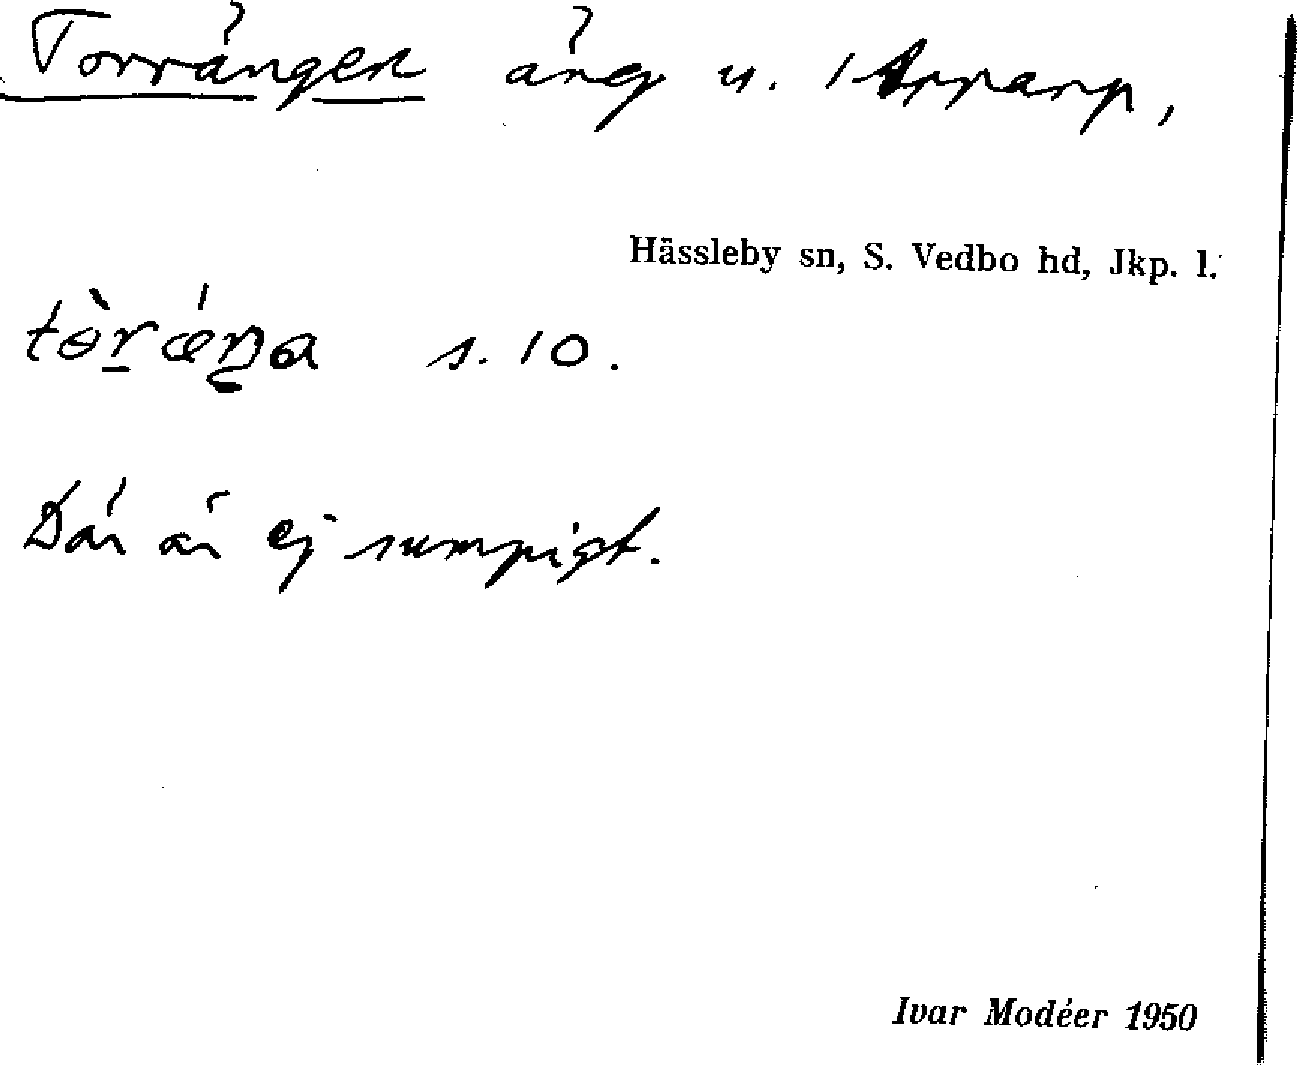 Torrängen äng u. Arparp,
Hässleby sn, S. Vedbo hd, Jkp. l.
s. 10.
Där är ej sumpigt.
Ivar Modéer 1950